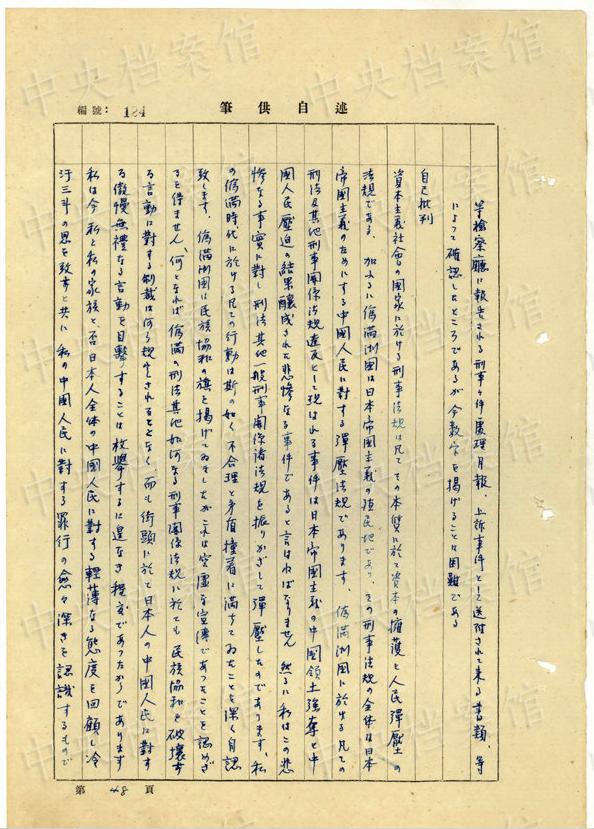 中央档案馆
編號: 124
筆供自述
等檢察廳に報告される刑事々件處理月報、上訴事件として送付されて来る書類、等
によつて確認したところであるが今数字を掲げることは困難である
自己批判
資本主義社會の国家に於ける刑事法規は凡て その本質に於て資本の擁護と人民彈壓の
法規である、加ふるに偽満洲国は日本帝国主義の殖民地であり、その刑事法規の全体は日本
帝国主義のためにする中国人民に対する彈壓法規であります、偽満洲国に於ける凡ての
刑法及其他刑事関係法規違反として現はれる事件は日本帝国主義の中国領土強奪と中
国人民壓迫の結果醸成された悲惨なる事件であると言はねばなりません 然るに私はこの悲
惨なる事實に対し刑法其他一般刑事関係諸法規を振りかざして彈壓したのであります、私
の偽満時代に於ける凡ての行動は斯の如く不合理と矛盾撞着に満ちてゐたことを深く自認
致します、偽満洲国は民族協和の旗を掲げてゐましたがこれは空虚な宣傳であつたことを認めざ
るを得ません、何となれば偽満の刑法其他如何なる刑事関係法規に於ても 民族協和を破壊す
る言動に対する制裁は何ら規定されることなく、而も街頭に於て日本人の中国人民に対す
る傲慢無禮なる言動を目撃することは枚挙するに遑なき程度であつたからであります
私は今 私と私の家族と否日本人全体の中国人民に対する軽薄なる態度を回顧し冷
汗三斗の思を致すと共に 私の中国人民に対する罪行の愈々深きを認識するもので
第 48 頁